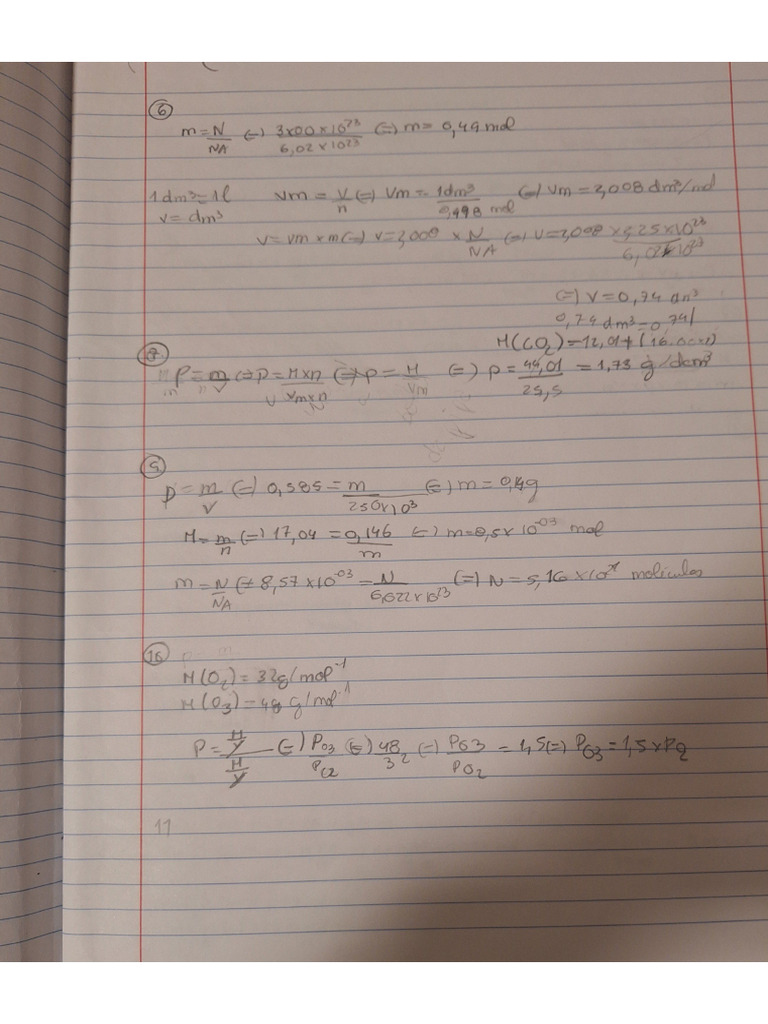 6
m = N/NA (=) 3x00 x 10^23 / 6,02 x 10^23 (=) m = 0,49 mol
1 dm³ = 1l Vm = V/n (=) Vm = 1dm³ / 0,498 mol (=) Vm = 2,008 dm³/mol
V = dm³
V = Vm x m (=) V = 2,008 x N/NA (=) V = 2,008 x 2,25 x 10^23 / 6,02 x 10^23
(=) V = 0,74 dm³
0,74 dm³ = 0,74l
M(CO2) = 12,01 + (16.00x2)
8
p = m/V (=) p = M x n / Vm x n (=) p = M/Vm (=) p = 44,01 / 25,5 = 1,73 g/dcm³
9
p = m/V (=) 0,585 = m / 250 x 10^3 (=) m = 0,14g
M = m/n (=) 17,04 = 0,146 / m (=) m = 8,5 x 10^-03 mol
m = N/NA (=) 8,57 x 10^-03 = N / 6,022 x 10^23 (=) N = 5,16 x 10^21 moliculas
10
M(O2) = 32g/mol^-1
M(O3) = 48 g/mol^-1
P = M/V / M/V (=) PO3 / PO2 (=) 48 / 32 (=) PO3 / PO2 = 1,5 (=) PO3 = 1,5 x P2
11